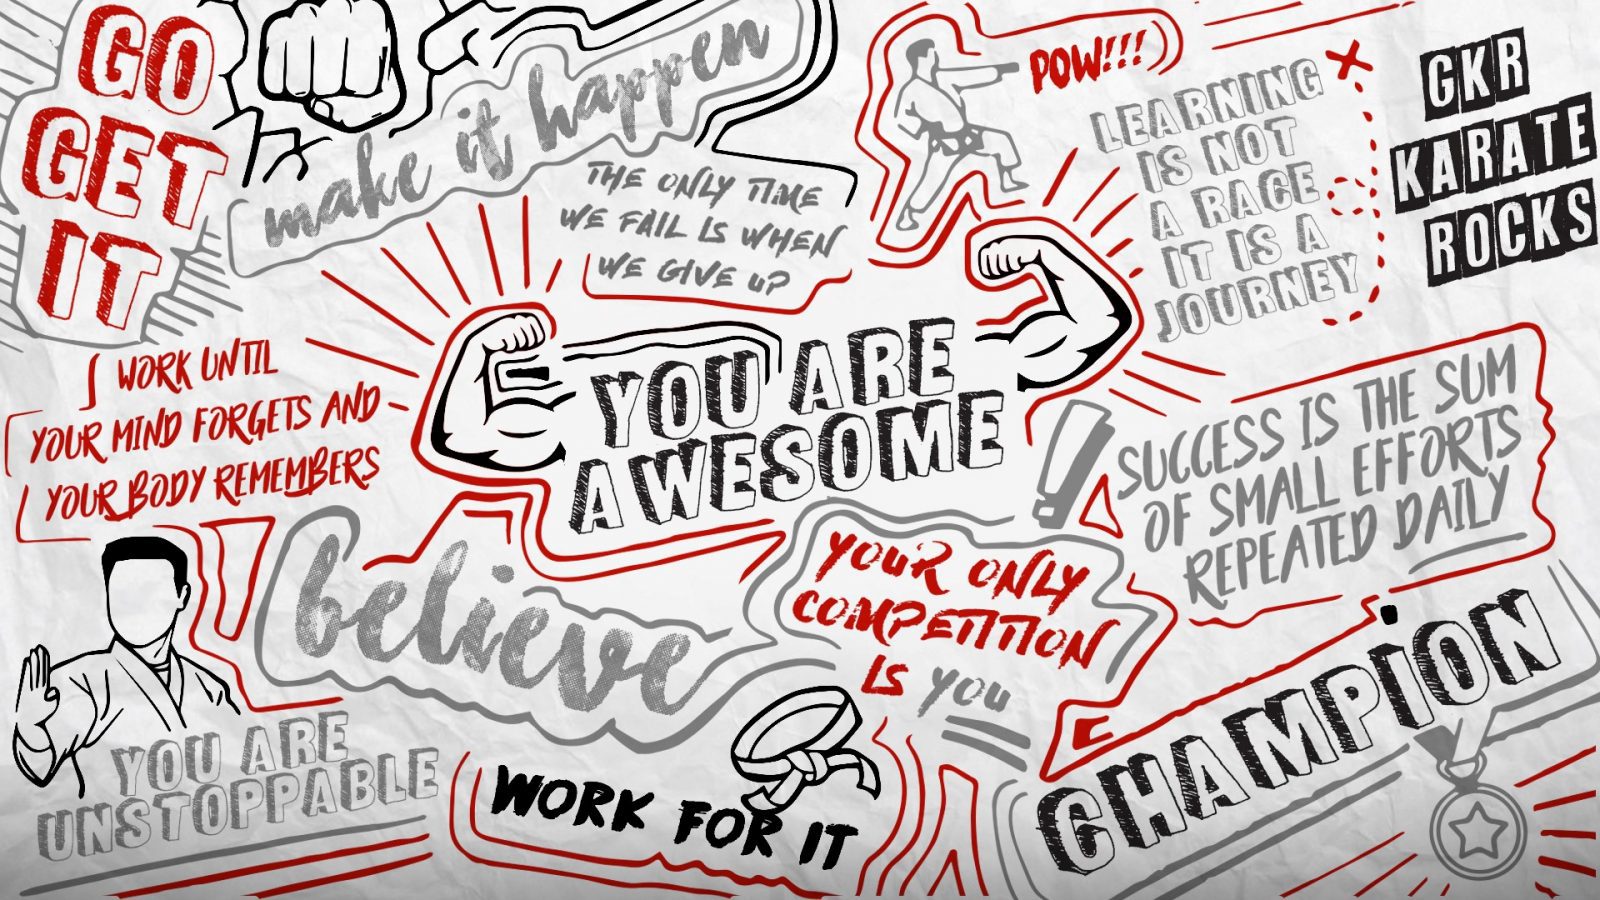 GO
GET
IT
make it happen
THE ONLY TIME
WE FAIL IS WHEN
WE GIVE UP
POW!!!
LEARNING
IS NOT
A RACE
IT IS A
JOURNEY
GKR
KARATE
ROCKS
WORK UNTIL
YOUR MIND FORGETS AND
YOUR BODY REMEMBERS
YOU ARE
AWESOME
!
SUCCESS IS THE SUM
OF SMALL EFFORTS
REPEATED DAILY
believe
YOUR ONLY
COMPETITION
IS YOU
YOU ARE
UNSTOPPABLE
WORK FOR IT
CHAMPION